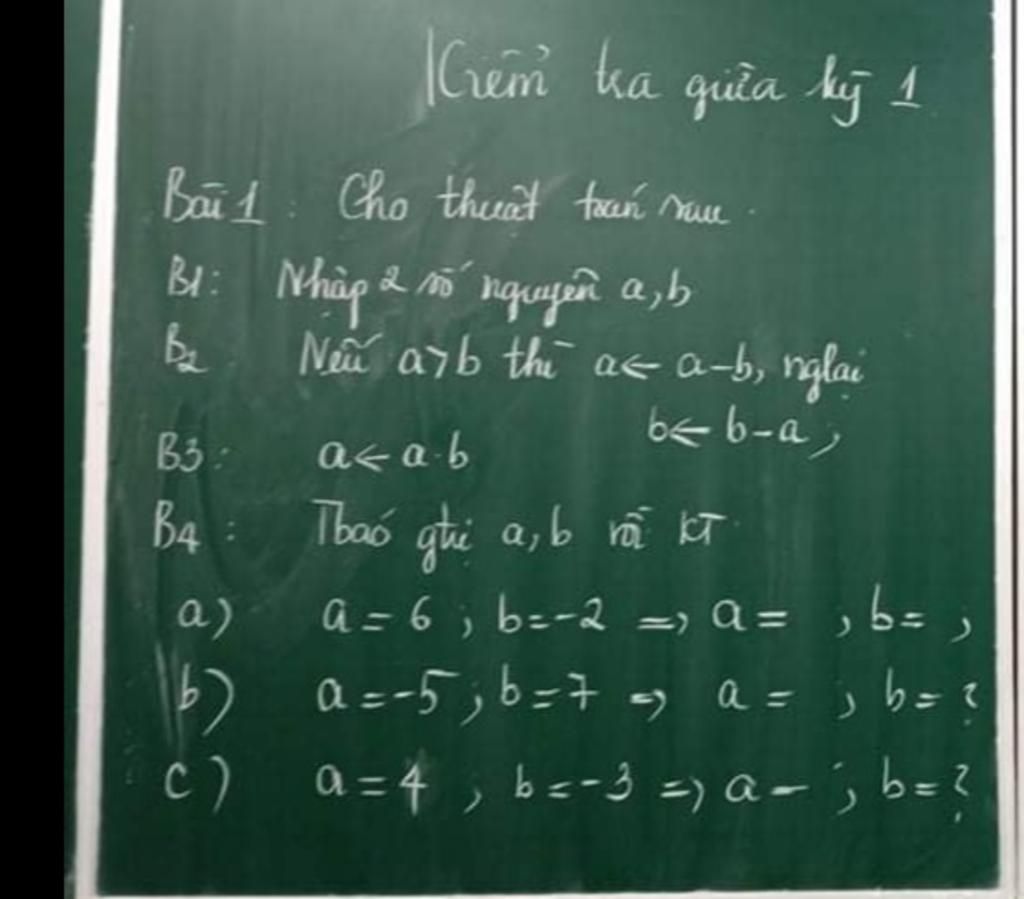 Kiểm tra giữa kỳ 1
Bài 1: Cho thuật toán sau.
B1: Nhập 2 số nguyên a,b
B2 Nếu a>b thì a← a-b, nglại
b← b-a ;
B3: a← a.b
B4: Tbaó ghị a,b rồi KT.
a) a = 6 ; b=-2 => a= ; b= ;
b) a=-5 ; b=7 => a= ; b= ?
c) a=4 ; b=-3 => a= ; b=?